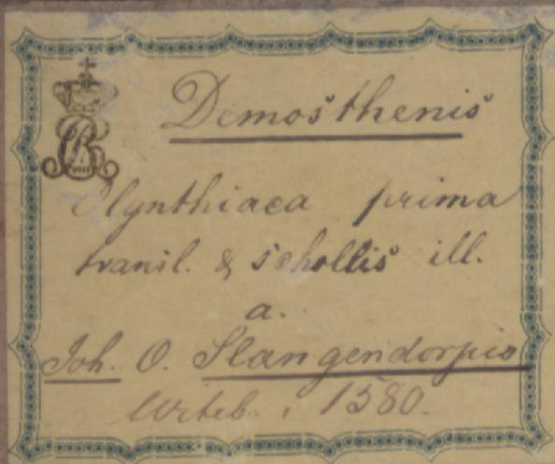 Demosthenis
Olynthiaca prima
transl. & schollis ill.
a.
Joh. O. Slangendorpio
Witeb. 1580.